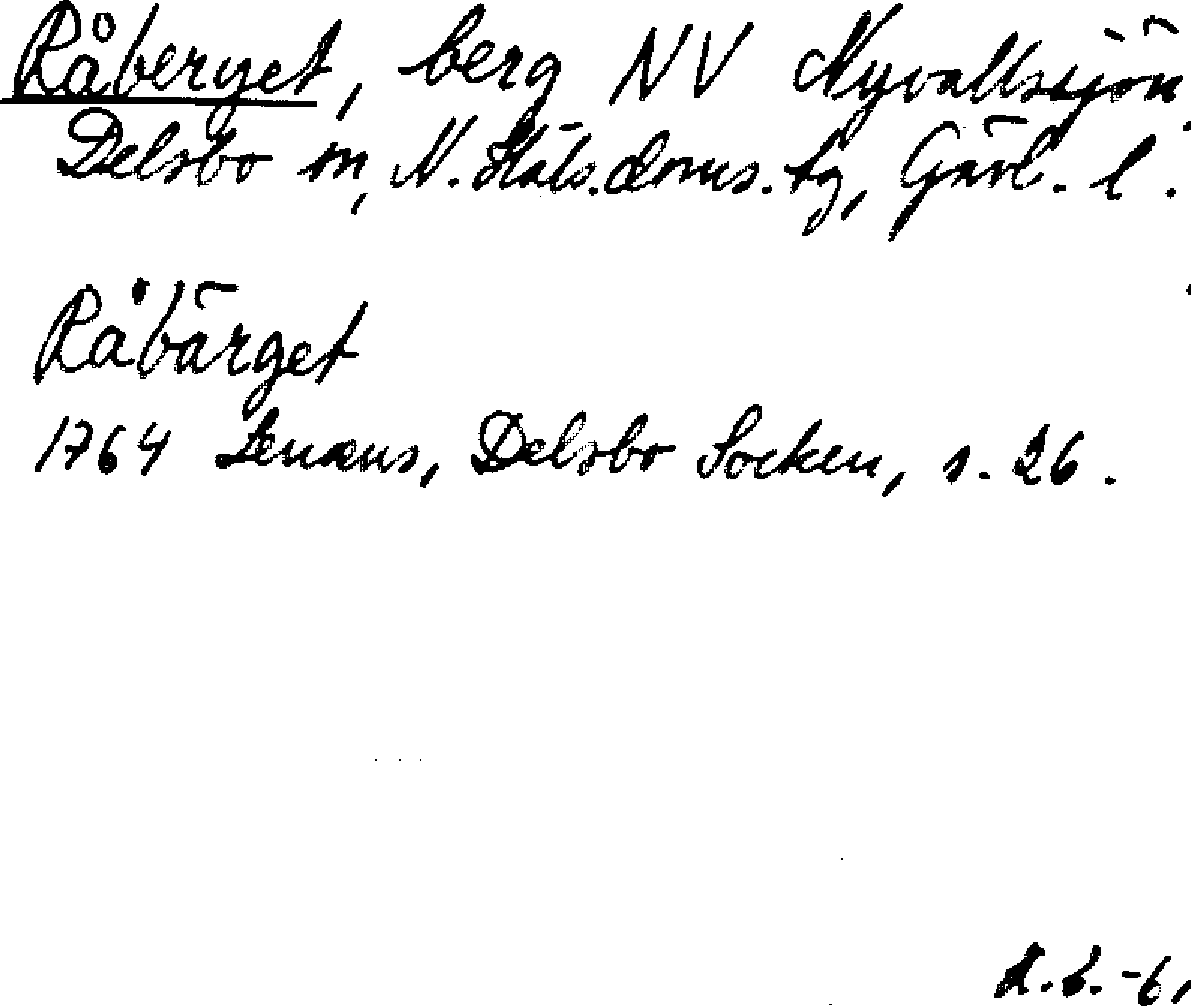 Råberget, berg NV Nyvallssjön
Delsbo sn, N. Häls. doms. tg, Gävl. l.
Råbärget
1764 Lenæus, Delsbo Socken, s. 26.